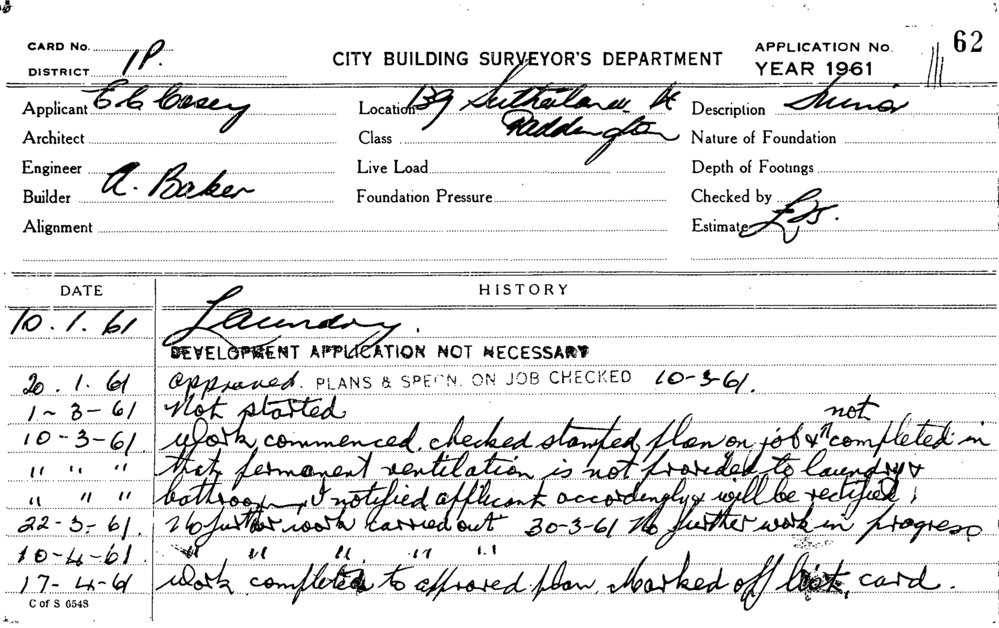 CARD No.
DISTRICT 1P.
CITY BUILDING SURVEYOR'S DEPARTMENT
APPLICATION No. 62
YEAR 1961
Applicant E C Casey
Location 139 Sutherland St
Paddington
Description Minor
Architect
Class
Nature of Foundation
Engineer
Live Load
Depth of Footings
Builder A. Baker
Foundation Pressure
Checked by
Alignment
Estimate
DATE
HISTORY
10.1.61 Laundry.
DEVELOPMENT APPLICATION NOT NECESSARY
20.1.61 approved. PLANS & SPECN. ON JOB CHECKED 10-3-61.
1-3-61 Not started
10-3-61 Work commenced, checked stamped plan on job & not completed in
" " " that permanent ventilation is not provided to laundry &
" " " bathroom, I notified applicant accordingly & will be rectified;
22-3-61. No further work carried out 30-3-61 No further work in progress
10-4-61 " " " " "
17-4-61 Work completed to approved plan. Marked off card.
C of S 6548